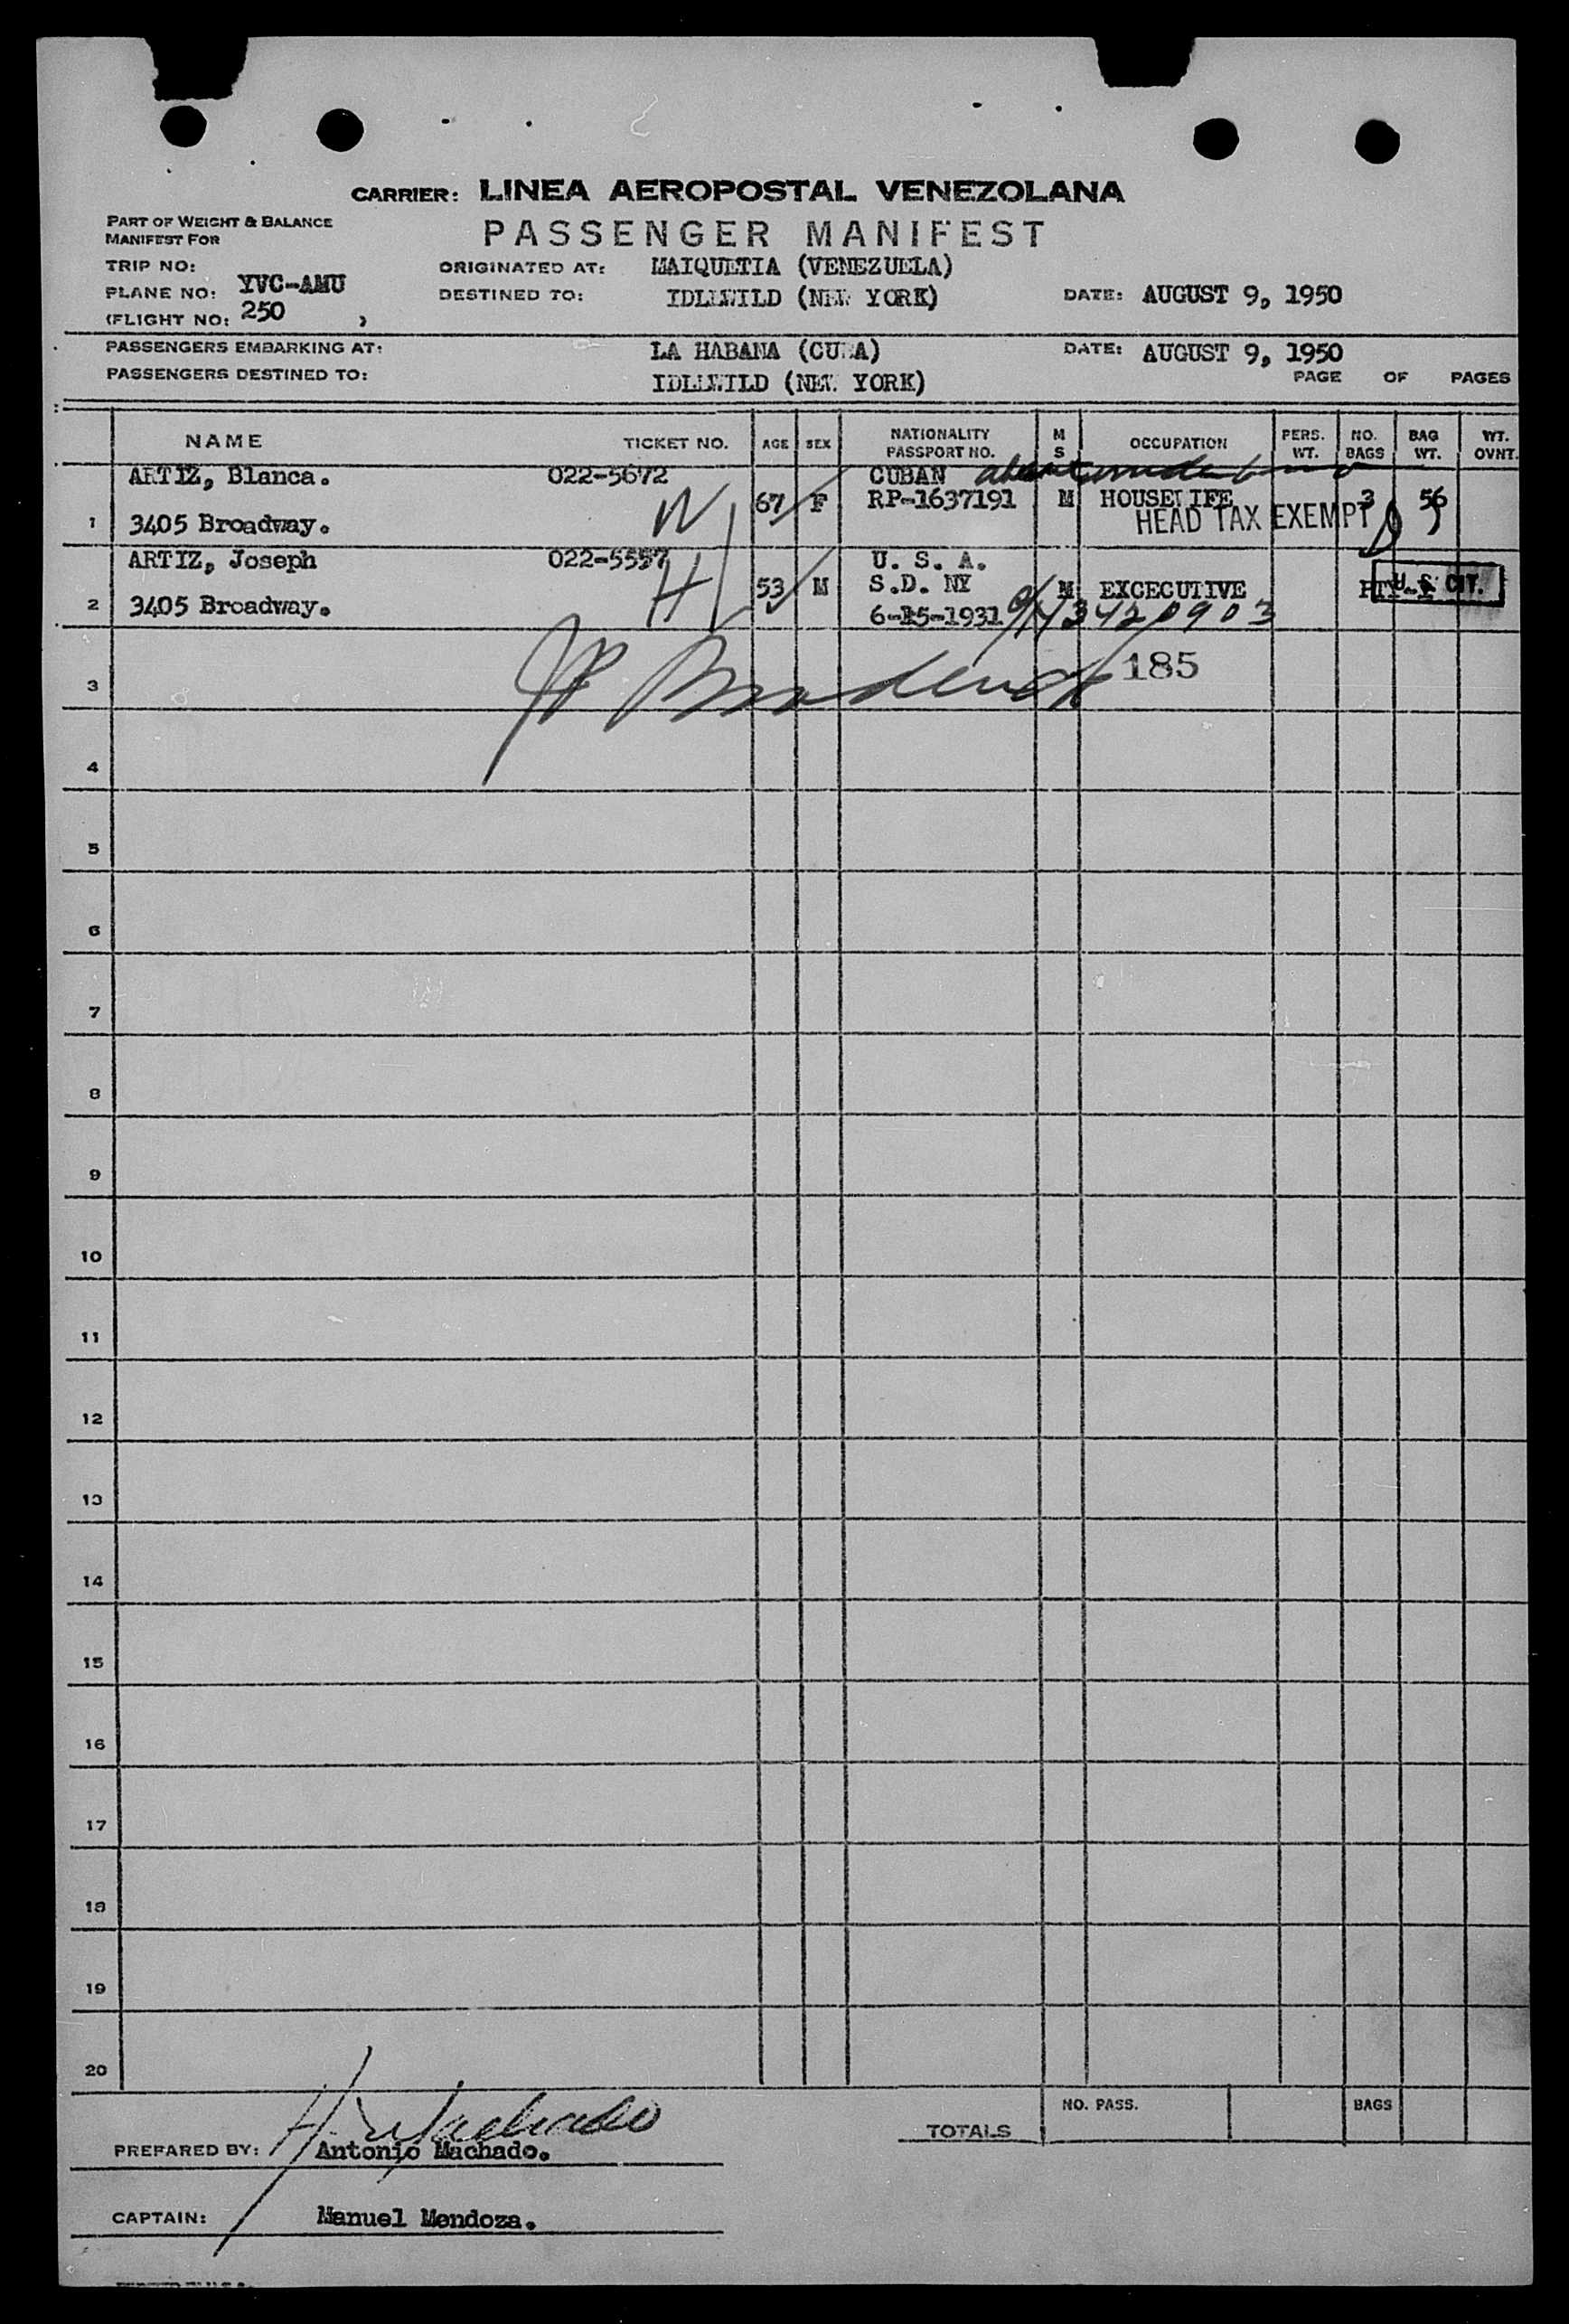 CARRIER: LINEA AEROPOSTAL VENEZOLANA
PART OF WEIGHT & BALANCE
MANIFEST FOR
PASSENGER MANIFEST
TRIP NO:
ORIGINATED AT: MAIQUETIA (VENEZUELA)
PLANE NO: YVC-AMU
DESTINED TO: IDLEWILD (NEW YORK) DATE: AUGUST 9, 1950
(FLIGHT NO: 250 )
PASSENGERS EMBARKING AT: LA HABANA (CUBA) DATE: AUGUST 9, 1950
PASSENGERS DESTINED TO: IDLEWILD (NEW YORK) PAGE OF PAGES
NAME TICKET NO. AGE SEX NATIONALITY PASSPORT NO. M S OCCUPATION PERS. WT. NO. BAGS BAG WT. WT. OVNT.
ARTIZ, Blanca. 022-5672 CUBAN
W 67 F RP-1637191 M HOUSEWIFE 3 56
1 3405 Broadway. HEAD TAX EXEMPT
ARTIZ, Joseph 022-5557 U. S. A.
H 53 M S.D. NY M EXCECUTIVE U. S. CIT.
2 3405 Broadway. 6-15-1931 43420903
3 185
4
5
6
7
8
9
10
11
12
13
14
15
16
17
18
19
20
TOTALS NO. PASS. BAGS
PREPARED BY: Antonio Machado.
CAPTAIN: Manuel Mendoza.